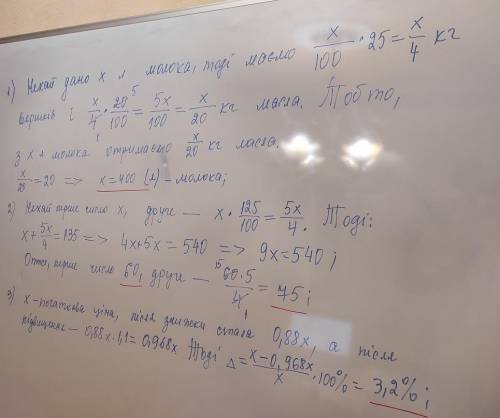 1) Нехай дано x л молока, тоді маємо x/100 · 25 = x/4 кг
вершків і x/4 · 20/100 = 5x/100 = x/20 кг масла. Тобто,
з x л молока отримаємо x/20 кг масла.
x/20 = 20 => x = 400 (л) – молока;
2) Нехай перше число x, друге — x · 125/100 = 5x/4. Тоді:
x + 5x/4 = 135 => 4x + 5x = 540 => 9x = 540;
Отже, перше число 60, друге — 60·5/4 = 75;
3) x – початкова ціна, після знижки стала 0,88x, а після
підвищення — 0,88x · 1,1 = 0,968x Тоді Δ = x – 0,968x/x · 100% = 3,2%;